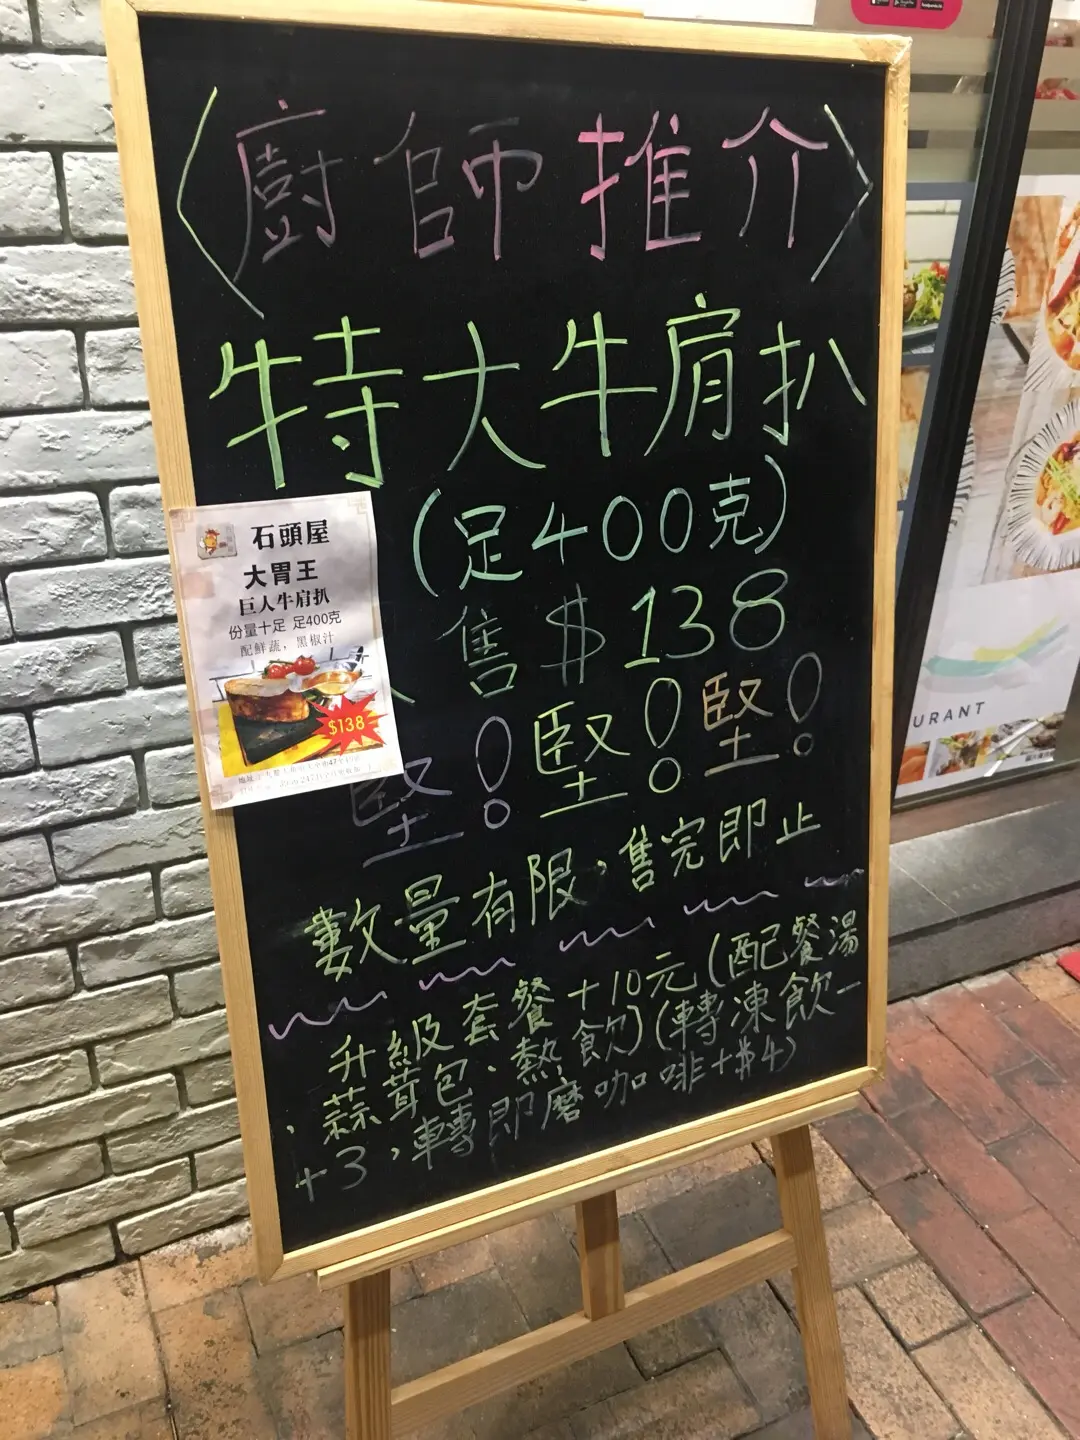 〈廚師推介〉
特大牛肩扒
(足400克)
售$138
堅! 堅! 堅!
數量有限,售完即止
升級套餐+10元(配餐湯
、蒜茸包、熱飲)(轉凍飲一
+3,轉即磨咖啡+$4)
石頭屋
大胃王
巨人牛肩扒
份量十足 足400克
配鮮蔬,黑椒汁
$138
URANT